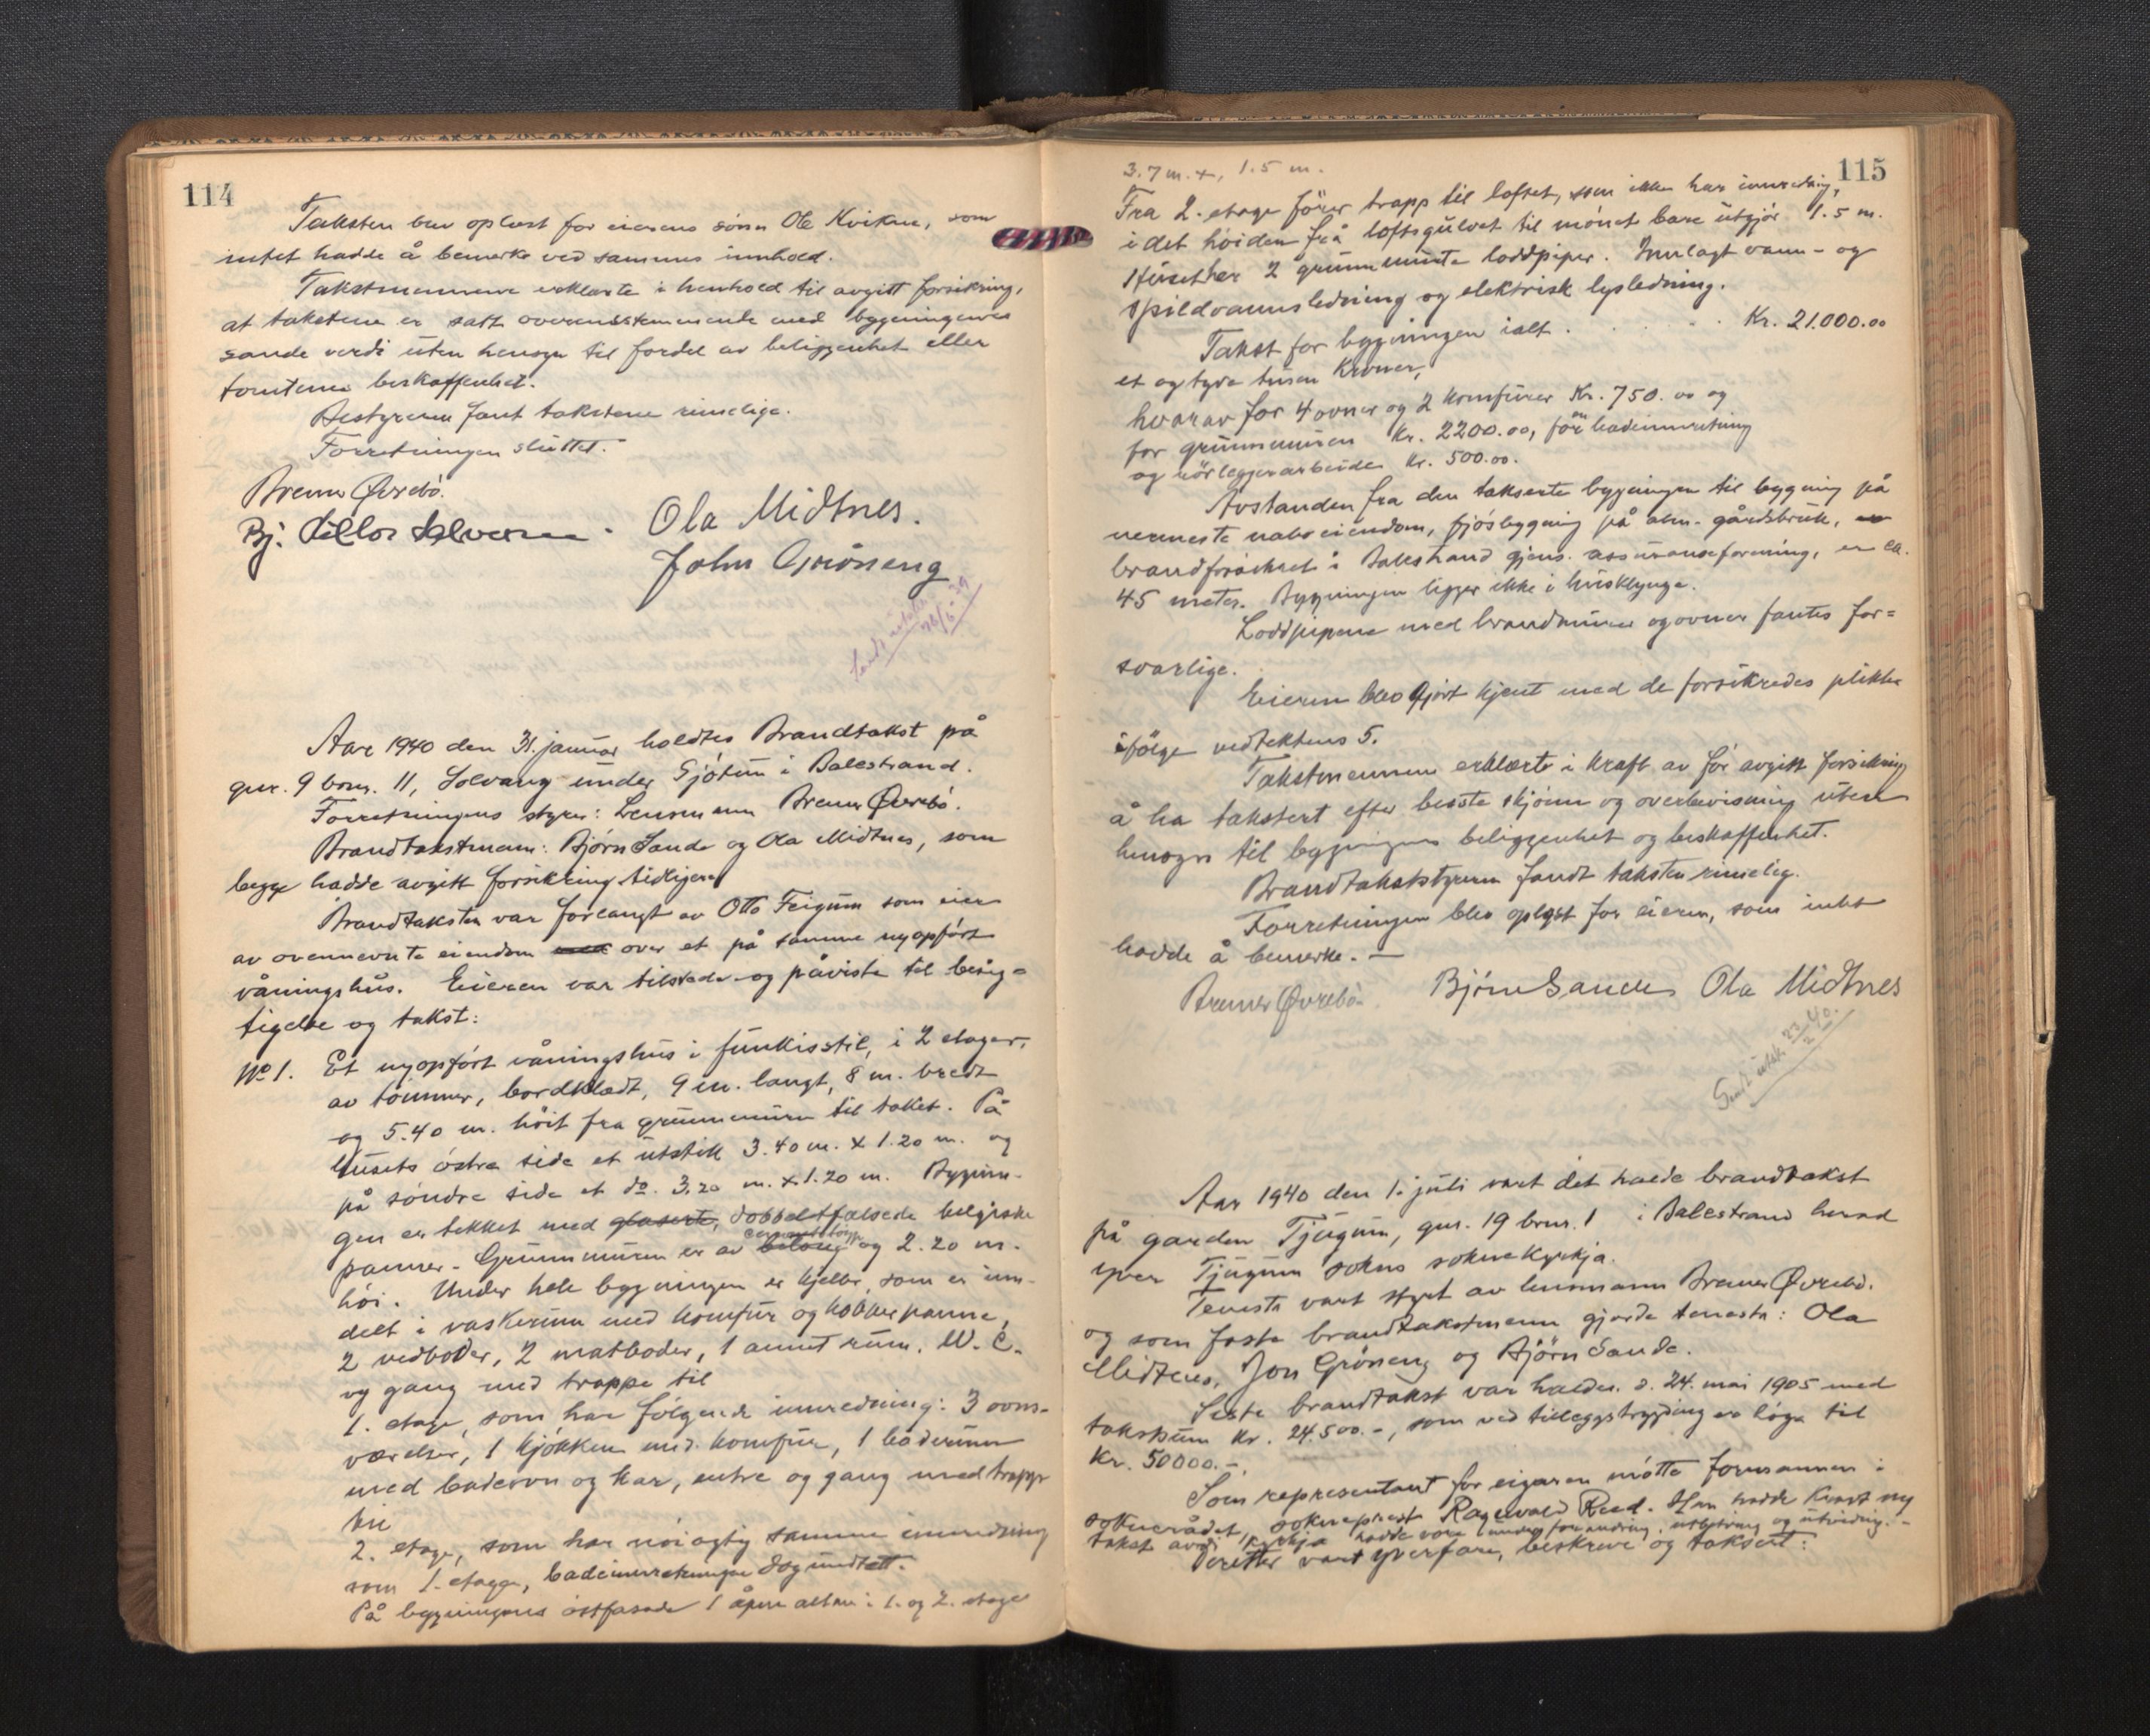 114
Taksten blev oplest for eierens sönn Ole Kvikne, som
intet hadde å bemerke ved sammes innhold.
Takstmennene erklærte i henhold til avgitt forsikring,
at takstene er satt overensstemmende med bygningenes
sande verdi uten hensyn til fordel av beliggenhet eller
tomtenes beskaffenhet.
Bestyreren fant takstene rimelige.
Forretningen sluttet.
Bremer Øvrebö.
Ola Midtnes.
John Gröneng
Aar 1940 den 31. januar holdtes Brandtakst på
gnr. 9 brnr. 11, Solvang under Sjötun i Balestrand.
Forretningens styrer: Lensmann Bremer Øvrebö.
Brandtakstmenn: Björn Sande og Ola Midtnes, som
begge hadde avgitt forsikring tidligere
Brandtaksten var forlangt av Otto Feigum som eier
av ovennevnte eiendom over et på samme nyopfört
våningshus. Eieren var tilstede og påviste til besig=
tigelse og takst:
No 1. Et nyopfört våningshus i funkisstil, i 2 etager,
av tömmer, bordklædt, 9 m. langt, 8 m. bredt
og 5.40 m. höit fra grunnmuren til taket. På
husets östre side et utstikk 3.40 m. x 1.20 m. og
på söndre side et do. 3.20 m. x 1.20 m. Bygnin-
gen er tekket med glaserte, dobbeltfalsede belgiske
panner. Grunnmuren er av betong og 2.20 m.
höi. Under hele bygningen er kjeller, som er inn-
delt i vaskerum med komfur og kobberpanne,
2 vedboder, 2 matboder, 1 annet rum, W.C.
og gang med trappe til
1. etage, som har fölgende innredning: 3 ovns-
værelser, 1 kjökken med komfur, 1 baderum
med badeovn og kar, entre og gang med trapp
til
2. etage, som har nöiagtig samme innredning
som 1. etage, badeinnretningen dog undtatt.
På bygningens östfasade 1 åpen altan i 1. og 2. etage
115
3.7 m. x, 1.5 m.
Fra 2. etage förer trapp til loftet, som ikke har innredning,
i det höiden frå loftsgulvet til mönet bare utgjör 1.5 m.
Huset har 2 grunnmurte loddpiper. Innlagt vann- og
spildvannsledning og elektrisk lysledning.
Takst for bygningen ialt . . . . Kr. 21.000.00
et og tyve tusen Kroner,
hvorav for 4 ovner og 2 komfurer Kr. 750.00 og
for grunnmuren Kr. 2200.00, for badeinnretning
og rörleggerarbeide Kr. 500.00.
Avstanden fra den takserte bygningen til bygning på
nærmeste naboeiendom, fjösbygning på alm. gårdsbruk,
brandforsikret i Balestrand gjens. assuranseforening, er ca.
45 meter. Bygningen ligger ikke i husklynge.
Loddpipene med brandmurer og ovner fantes for=
svarlige.
Eieren blev gjort kjent med de forsikredes plikter
ifölge vedtektens 5.
Takstmennene erklærte i kraft av för avgitt forsikring
å ha takstert efter beste skjönn og overbevisning uten
hensyn til bygningens beliggenhet og beskaffenhet.
Brandtakststyreren fandt taksten rimelig.
Forretningen blev oplyst for eieren, som intet
hadde å bemerke. —
Bremer Øvrebö Björn Sande Ola Midtnes
Sendt utskr. 23/2 40.
Aar 1940 den 1. juli vart det halde brandtakst
på garden Tjugum, gnr. 19 brnr. 1 i Balestrand herad
yver Tjugum sokns soknekyrkja.
Tenesta vart styrt av lensmann Bremer Øvrebö.
og som faste brandtakstmenn gjorde tenesta: Ola
Midtnes, Jon Gröneng og Björn Sande.
Siste brandtakst var halden d. 24. mai 1905 med
takstsum Kr. 24.500.-, som ved tilleggstrygding er höga til
Kr. 50000.-.
Som representant for eigaren mötte formannen i
soknerådet, sokneprest Ragnvald Reed. Han hadde kravt ny
takst av di kyrkja hadde vore under forandring, utbetring og utviding. -
Deretter vart yverfare, beskreve og taksert: